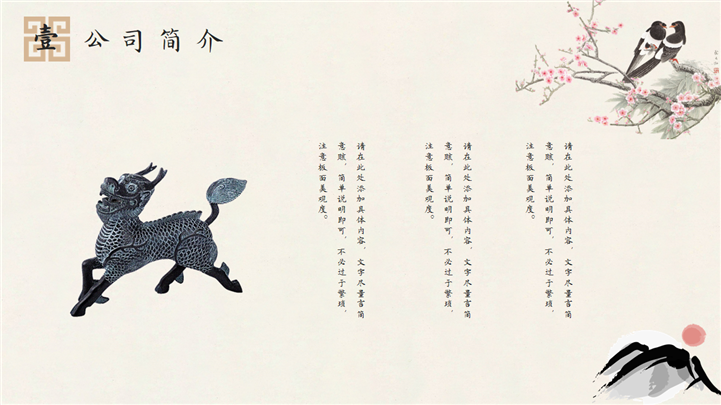 壹
公司简介
请在此处添加具体内容，文字尽量言简
意赅，简单说明即可，不必过于繁琐，
注意板面美观度。
请在此处添加具体内容，文字尽量言简
意赅，简单说明即可，不必过于繁琐，
注意板面美观度。
请在此处添加具体内容，文字尽量言简
意赅，简单说明即可，不必过于繁琐，
注意板面美观度。